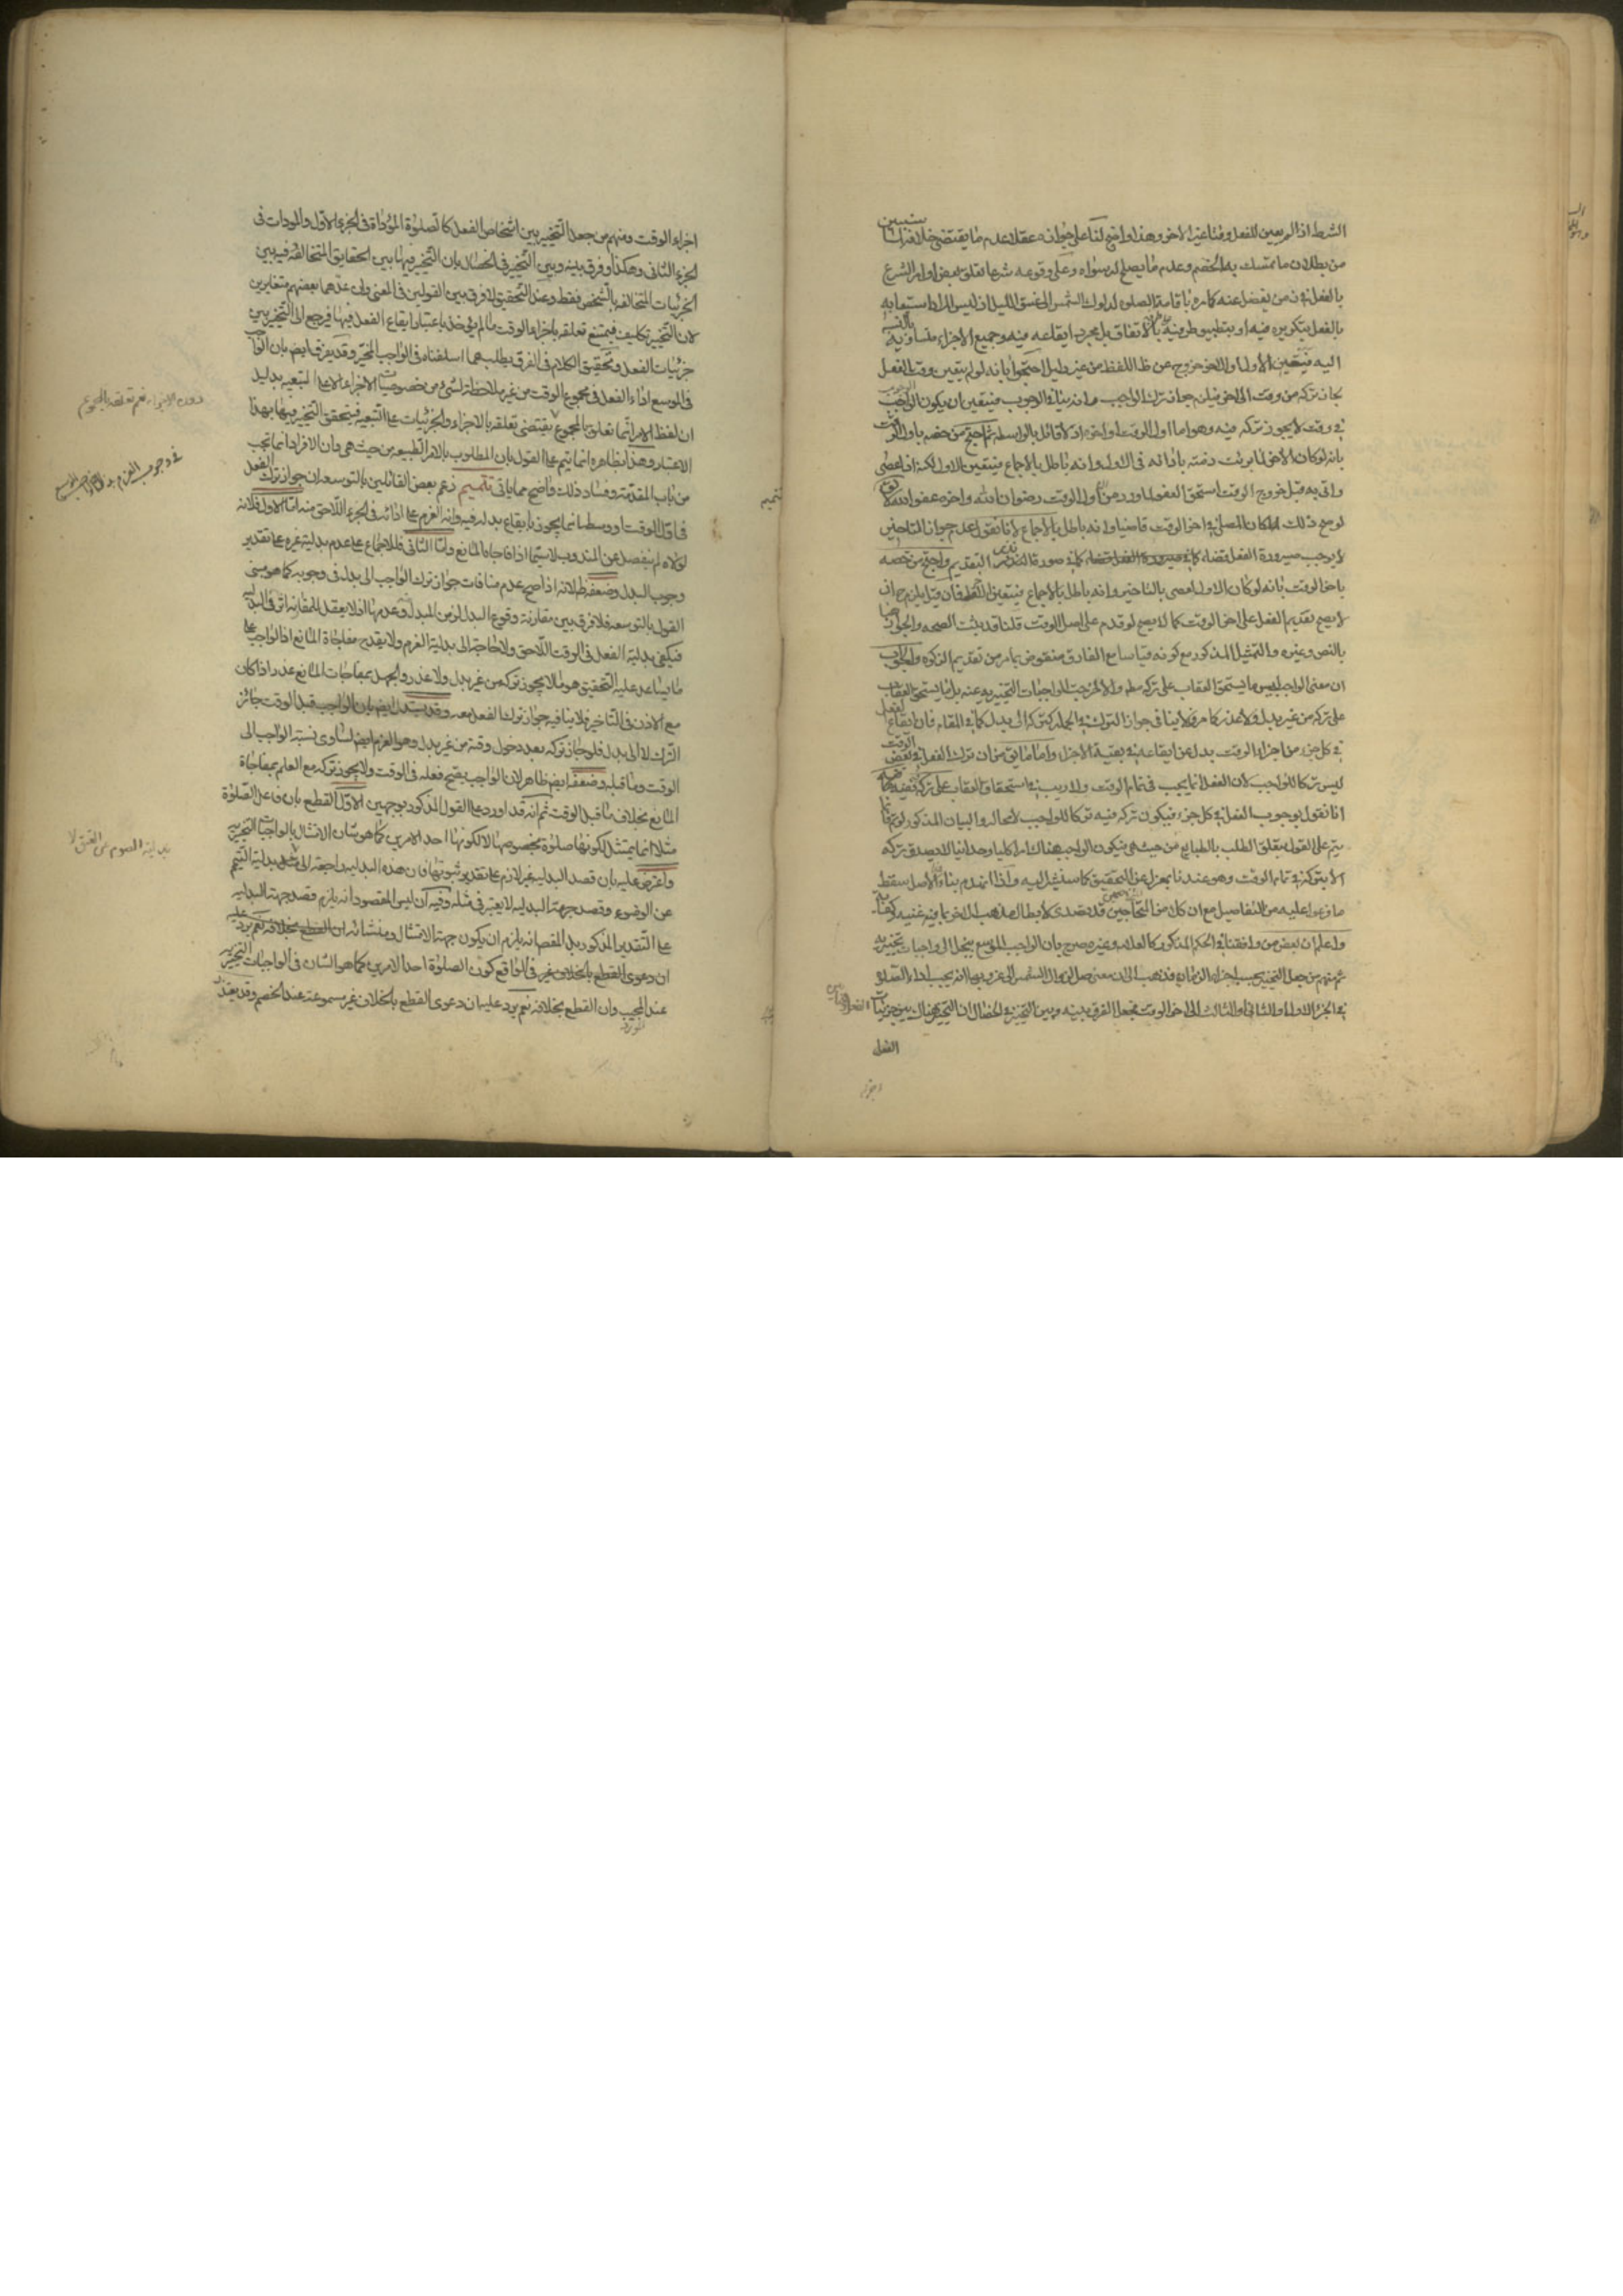 الشرط اذ المر بعين للفعل وقتا غير الاخر وهذا واضح لنا على جوازه عقلا عدم ما يقتضى خلافه لما سنبين
من بطلان ما تمسك به الخصم وعدم ما يصلح له سواه وعلى وقوعه شرعا تعلق بعض اوامر الشرع
بالفعل في زمن يفضل عنه كامره باقامة الصلوه لدلوك الشمس الى غسق الليل اذ ليس المراد استيعابه
بالفعل بتكريره فيه او بتطبيق طرفيه بالاتفاق بل مجرد ايقاعه فيه وجميع الاجزاء متساويه بالنسبه
اليه فتعيين الاول او الاخر خروج عن ظ اللفظ من غير دليل احتجوا بانه لو لم يتعين وقت الفعل
لجاز تركه من وقت الى اخر فيلزم جواز ترك الواجب وانه ينافي الوجوب فيتعين ان يكون الوجوب
في وقت لا يجوز تركه فيه وهو اما اول الوقت او اخره اذ لا قائل بالواسطه ثم احتج من خصه باول الوقت
بانه لو كان الاخر لما برئت ذمته بادائه في الاول وانه باطل بالاجماع فيتعين الاول لكنه اذا عصى
واتى به قبل خروج الوقت استحق العفو لما ورد من ان اول الوقت رضوان الله واخره عفو الله
لو صح ذلك لكان المصلي في اخر الوقت قاضيا وانه باطل بالاجماع لانا نقول عدم جواز التاخير
لا يوجب صيرورة الفعل قضاء كما في صورة النذر التقديم واحتج من خصه
باخر الوقت بانه لو كان الاول لعصى بالتاخير وانه باطل بالاجماع فيتعين الاخر فان قيل يلزم ح ان
لا يصح تقديم الفعل على اخر الوقت كما لا يصح لو قدم على اصل الوقت قلنا قد يثبت الصحه والجواز
بالنص وغيره والتمثيل المذكور مع كونه قياسا مع الفارق منقوض بما مر من تقديم الزكوه والجواب
ان معنى الواجب ليس ما يستحق العقاب على تركه مطلقا والا لخرجت الواجبات التخييريه عنه بل ما يستحق العقاب
على تركه من غير بدل ولا عذر كما مر فلا ينافي جواز الترك في الجمله كتركه الى بدل كما في المقام فان ايقاع الفعل
في كل جزء من اجزاء الوقت بدل عن ايقاعه في بقية الاجزاء واما ما يق من ان ترك الفعل في بعض الوقت
ليس تركا للواجب لان الفعل انما يجب في تمام الوقت ولا ريب في استحقاق العقاب على تركه ففيه
انا نقول بوجوب الفعل في كل جزء فيكون تركه فيه تركا للواجب لا محاله والبيان المذكور لو تم فانما
يتم على القول بتعلق الطلب بالطبايع من حيث هى فيكون الواجب هناك امرا كليا وحدانيا لا يصدق تركه
الا بتركه في تمام الوقت وهو عندنا بمعزل عن التحقيق كما سنشير اليه واذا انهدم بناء الاصل سقط
ما فرعوا عليه من التفاصيل مع ان كلا من المحتجين قد تصدى لابطال مذهب الاخر بما فيه غنيه
واعلم ان بعض من وافقنا في الحكم المذكور كالعلامه وغيره صرح بان الواجب الموسع ينحل الى واجبات تخييريه
ثم منهم من جعل التخيير بحسب اجزاء الزمان فذهب الى ان معنى صل من زوال الشمس الى غروبها انه يجب اداء الصلوة
في الجزء الاول او الثاني او الثالث الى اخر الوقت فجعل الفرق بينه وبين التخيير في الخصال ان التخيير هناك بين جزئيات
الفعل
اجزاء الوقت ومنهم من جعل التخيير بين اشخاص الفعل كالصلوة المؤداة في الجزء الاول والمودات في
الجزء الثاني وهكذا وفرق بينه وبين التخيير في الخصال بان التخيير فيها بين الحقايق المتخالفه وفيه بين
الجزئيات المتخالفه بالشخص فقط وعند التحقيق لا فرق بين القولين في المعنى وان عدهما بعضهم متغايرين
لان التخيير تكليف فيمتنع تعلقه باجزاء الوقت ما لم يؤخذ باعتبار ايقاع الفعل فيها فيرجع الى التخيير بين
جزئيات الفعل وتحقيق الكلام في الفرق يطلب مما اسلفناه في الواجب المخير وقد يفرق ايضا بان الواجب
في الموسع اداء الفعل في مجموع الوقت من غير ملاحظة لشئ من خصوصيات الاجزاء الا على التبعيه بدليل
ان لفظ الامر انما تعلق بالمجموع يقتضى تعلقه بالاجزاء والجزئيات على التبعيه فيتحقق التخيير فيها بهذا
الاعتبار وهذا بظاهره انما يتم على القول بان المطلوب بالامر الطبيعه من حيث هى وان الافراد انما تجب
من باب المقدمة وفساد ذلك واضح مما ياتى تتميم زعم بعض القائلين بالتوسعه ان جواز ترك الفعل
في اول الوقت او وسطه انما يجوز بايقاع بدله فيه وانه العزم على ادائه في الجزء اللاحق منه اما الاول فلانه
لولاه لم ينفصل عن المندوب لا سيما اذا فاجاه المانع واما الثانى فللاجماع على عدم بدلية غيره على تقدير
وجوب البدل وضعفه ظ لانه اذا صح عدم منافات جواز ترك الواجب الى بدل في وجوبه كما هو مبنى
القول بالتوسعه فلا فرق بين مقارنة وقوع البدل لزمن المبدل وعدمها اذ لا يعقل للمقارنه اثر في البدليه
فيكفى بدلية الفعل في الوقت اللاحق ولا حاجة الى بدلية العزم ولا يقدح مفاجاة المانع اذ الواجب على
ما يساعد عليه التحقيق هو ما لا يجوز تركه من غير بدل ولا عذر والجهل بمفاجات المانع عذر اذا كان
مع الاذن في التاخير فلا ينافيه جواز ترك الفعل معه وقد يستدل ايض بان الواجب قبل الوقت جائز
الترك لا الى بدل فلو جاز تركه بعد دخول وقته من غير بدل وهو العزم ايض لتساوى نسبة الواجب الى
الوقت وما قبله وضعفه ايض ظاهر لان الواجب يصح فعله في الوقت ولا يجوز تركه مع العلم بمفاجاة
المانع بخلاف ما قبل الوقت ثم انه قد اورد على القول المذكور بوجهين الاول القطع بان فاعل الصلوة
مثلا انما يمتثل لكونها صلوة بخصوصها لا لكونها احد الامرين كما هو شان الامتثال بالواجبات التخييريه
واعترض عليه بان قصد البدليه غير لازم على تقدير ثبوتها فان هذه البدليه راجعة الى بدلية التيمم
عن الوضوء وقصد جهة البدليه لا يعتبر في مثله وفيه ان ليس المقصود انه يلزم قصد جهة البدليه
على التقدير المذكور بل المقص انه يلزم ان يكون جهة الامتثال ومنشائه نعم يرد عليه
ان دعوى القطع بالخلاف غير في الواقع كون الصلوة احد الامرين كما هو الشان في الواجبات التخييريه
عند المجيب وان القطع بخلافه نعم يرد عليه ان دعوى القطع بالخلاف غير مسموعة عند الخصم وقد يعتذر
المورد
دون الاجزاء نعم تعلقه بالمجموع
في وجوب العزم
تتميم
بدلية الصوم عن العتق لا